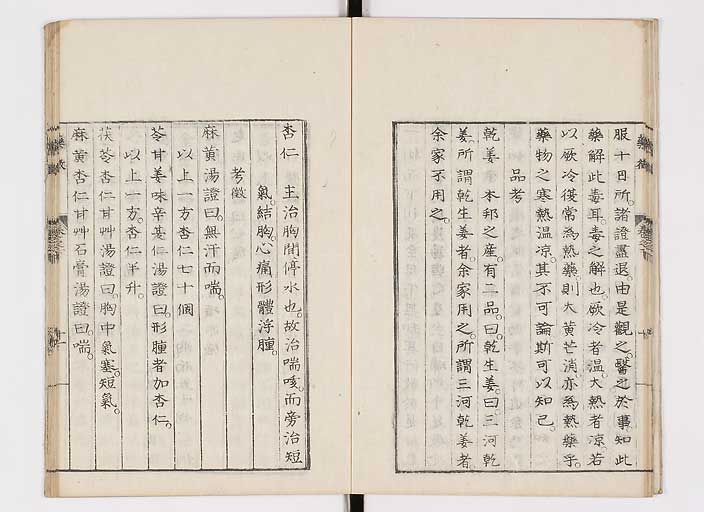 服十日所。諸證盡退。由是觀之。醫之於事。知此
藥解此毒耳。毒之解也。厥冷者温。大熱者凉。若
以厥冷復常爲熱藥。則大黄芒消。亦爲熱藥乎。
藥物之寒熱温凉。其不可論斯可以知已。
品考
乾姜 本邦之産。有二品。曰。乾生姜。曰。三河乾
姜。所謂乾生姜者。余家用之。所謂三河乾姜者。
余家不用之。
杏仁 主治胸間停水也。故治喘咳。而旁治短
氣。結胸。心痛。形體浮腫。
考徴
麻黄湯證曰。無汗而喘。
以上一方。杏仁七十個
苓甘姜味辛夏仁湯證曰。形腫者加杏仁。
以上一方。杏仁半升。
茯苓杏仁甘艸湯證曰。胸中氣塞。短氣。
麻黄杏仁甘艸石膏湯證曰。喘。